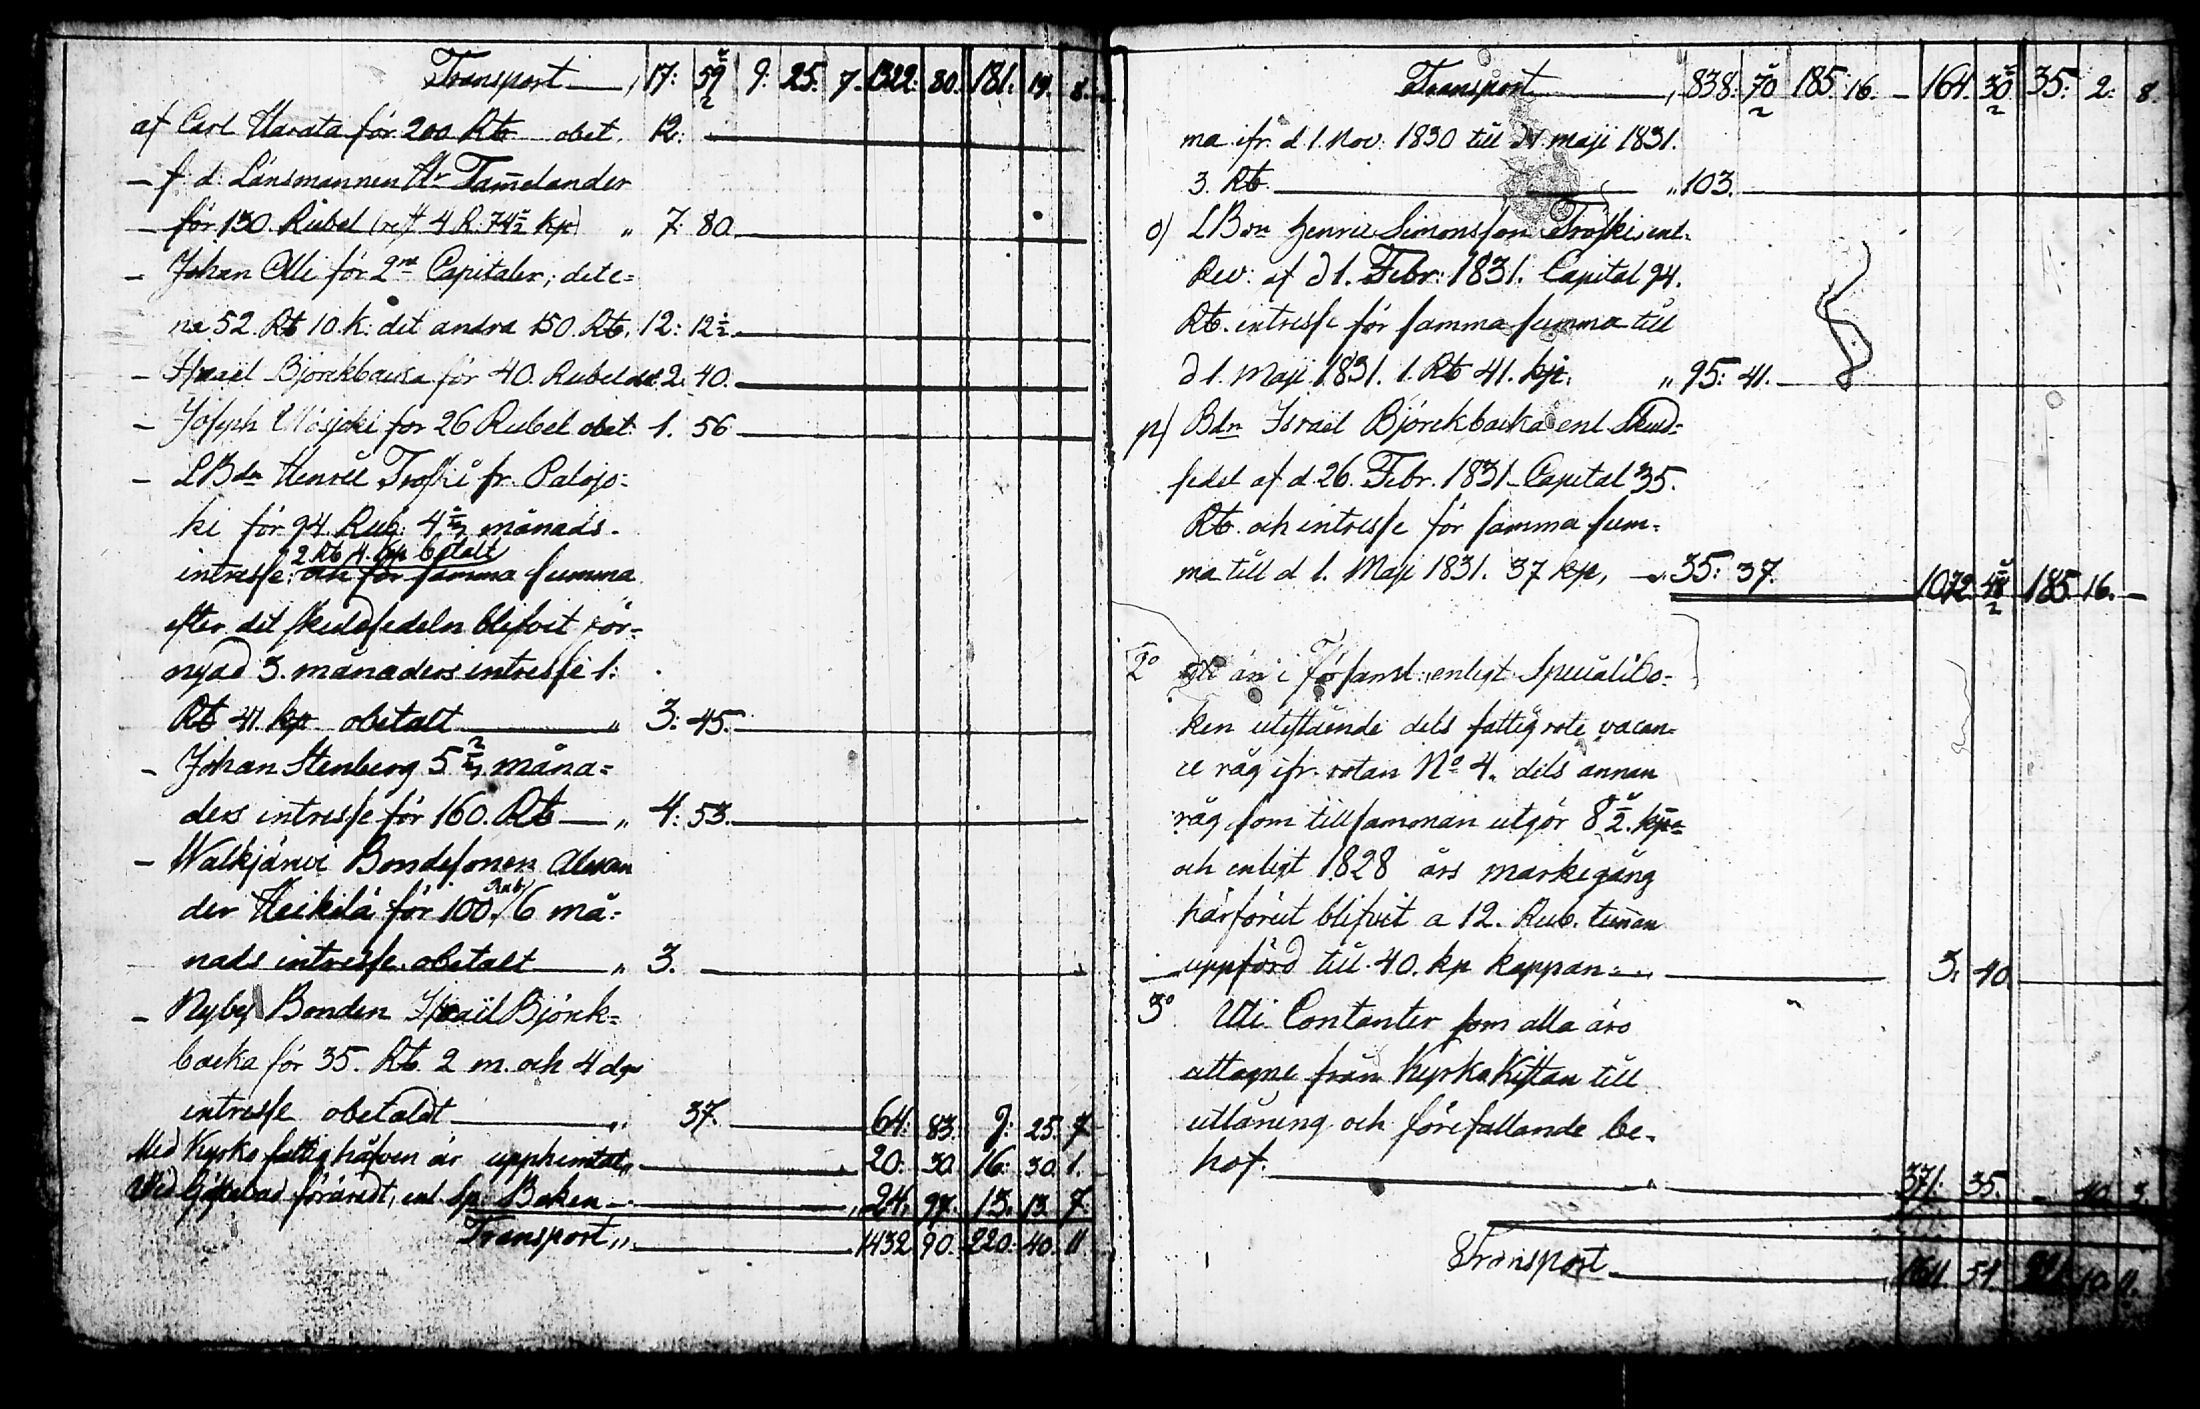 Transport 17: 59½ 9: 25. 7. 1322: 80. 181. 19. 8.
af Carl Harata för 200 Rb obet. 12:
– f. d. Länsmannen Hr Tam̄elander
– för 130. Rubel 4 R. 74½ kp) " 7: 80.
– Johan Olli för 2ne Capitaler; dete=
na 52. Rb 10. k: det andra 150. Rb. 12: 12½.
– Israël Björckbacka för 40. Rubel 2. 40.
– Joseph för 26 Rubel obet. 1. 56
– LBdn Henric Trofki fr. Palojo=
ki för 94. Rub: 4½ månads-
2 Rb 4. kp betalt
intresse: och för samma summa
efter det skuldsedeln blifvit för=
nyad 3. månaders intresse 1:
Rb 41. kp obetalt " 3: 45.
– Johan Stenberg 5⅔ måna=
ders intresse för 160. Rb " 4: 53.
– Walkjärvi Bondesonen Alexan
der Heikilä för 100. Rub/ 6 må=
nads intresse obetalt " 3.
– Nyby Bonden Israël Björck=
backa för 35. Rb. 2 m. och 4 dgr
intresse obetaldt " 37. 64: 83. 9: 25. 7
Med Kyrko fattig håfven är upphemtat " 20: 30. 16: 30. 1.
förärdt, enl Sp. Boken 24. 97. 13. 13. 7.
Transport " 1432. 90. 220. 40. 11
Transport 838: 70½ 185: 16. – 164. 30½ 35: 2: 8.
ma ifr. d. 1. Nov: 1830 till d 1. Maji 1831.
3. Rb. " 103.
o) LBdn Henric Simonsson Trofki enl.
Rev: af d 1. Febr: 1831. Capital 94.
Rb. intresse för samma summa till
d 1. Maji 1831. 1. Rb 41. kp. " 95: 41.
p) Bdn Israël Björckbacka enl Skuld=
sedel af d. 26. Febr. 1831. Capital 35.
Rb. och intresse för samma sum=
ma till d 1. Maji 1831. 37 kp, " 35: 37. 1072. 48½ 185. 16. –
2o är i Församl: enligt Specialbo=
ken utestående dels fattigrote vacan=
ce råg ifr. rotan No 4. dels annan
råg som tillsamman utgör 8½. kpr
och enligt 1828 års markegång
härförut blifvit a 12. Rub. tunnan
uppförd till 40. kp kappan " 3. 40.
3o Uti Contanter som alla äro
uttagne från Kyrko Kistan till
utlåning och förefallande be-
hof. " 371. 35. – 40. 3.
Transport